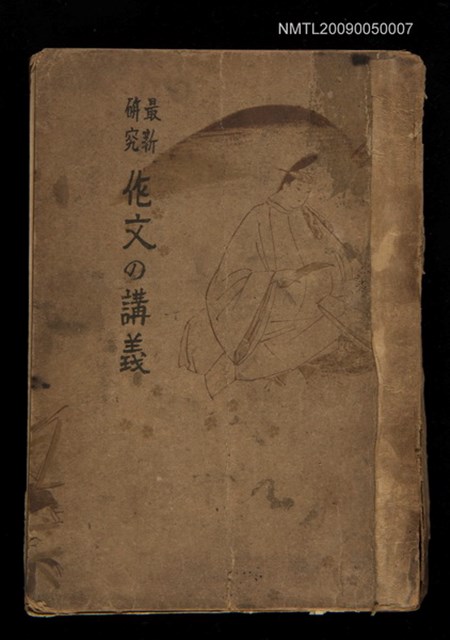 NMTL20090050007
最新
研究
作文の講義